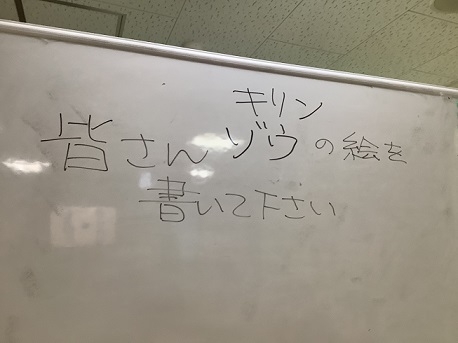 キリン
皆さんゾウの絵を
書いて下さい